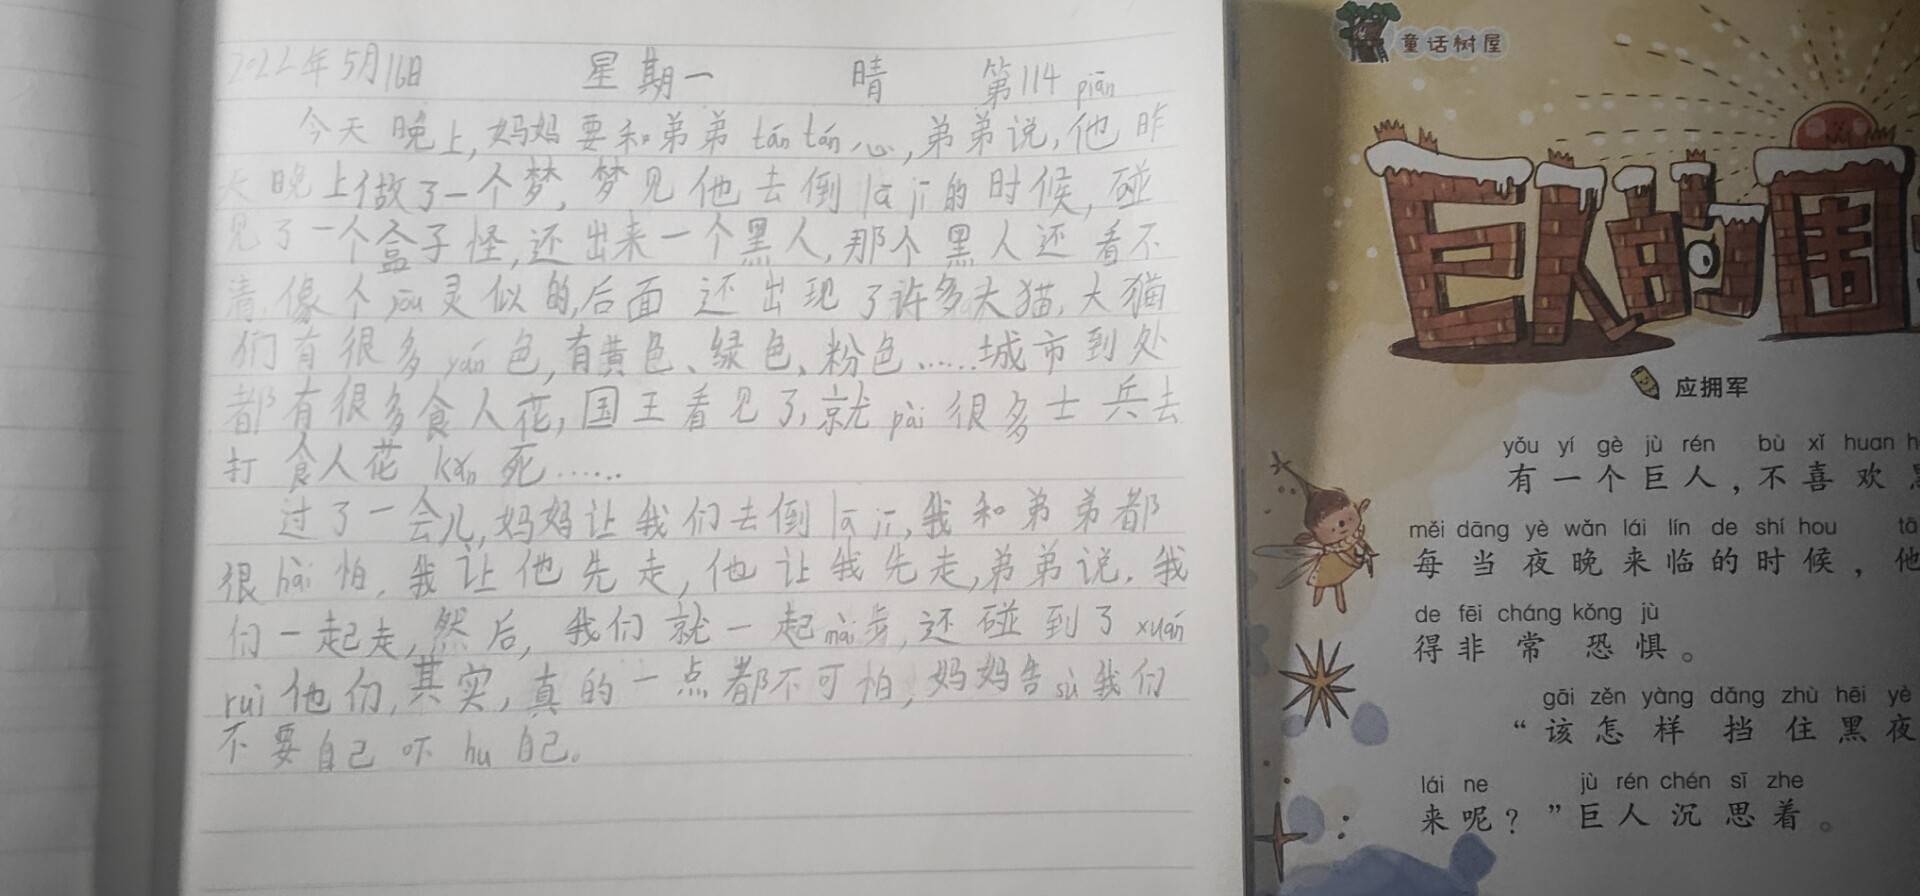 2022年5月16日 星期一 晴 第114 piān
今天晚上,妈妈要和弟弟 tán tán 心,弟弟说,他昨
天晚上做了一个梦,梦见他去倒 lā jī 的时候,碰
见了一个盒子怪,还出来一个黑人,那个黑人还看不
清,像个 yōu 灵似的,后面还出现了许多大猫,大猫
们有很多 yán 色,有黄色、绿色、粉色……城市到处
都有很多食人花,国王看见了,就 pài 很多士兵去
打食人花 kǎn 死……
过了一会儿,妈妈让我们去倒 lā jī,我和弟弟都
很 hài 怕,我让他先走,他让我先走,弟弟说,我
们一起走,然后,我们就一起 mài 步,还碰到了 xuān
rui 他们,其实,真的一点都不可怕,妈妈告 sù 我们
不要自己吓 hu 自己。
童话树屋
巨人的围
应拥军
yǒu yí gè jù rén bù xǐ huan h
有一个巨人,不喜欢黑
měi dāng yè wǎn lái lín de shí hou tā
每当夜晚来临的时候,他
de fēi cháng kǒng jù
得非常恐惧。
gāi zěn yàng dǎng zhù hēi yè
“该怎样挡住黑夜
lái ne jù rén chén sī zhe
来呢?”巨人沉思着。